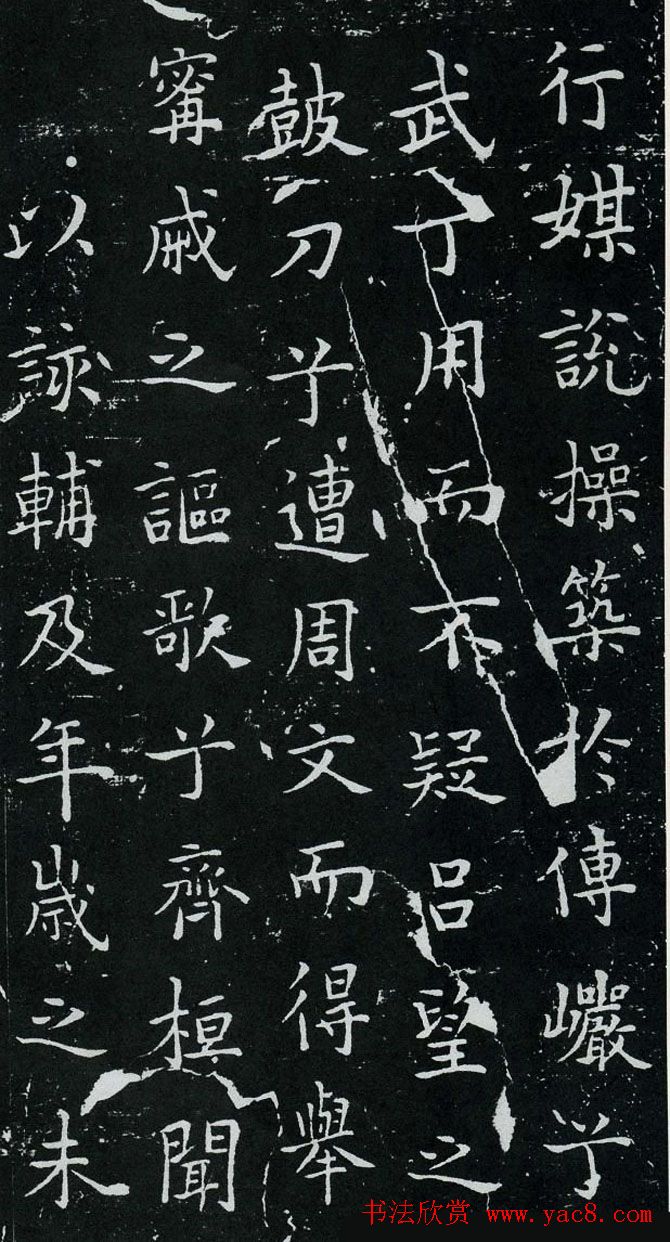 行媒說操築扵傅巗兮
武丁用而不疑呂望之
皷刀兮遭周文而得舉
甯戚之謳歌兮齊桓聞
以該輔及年歲之未
书法欣赏 www.yac8.com